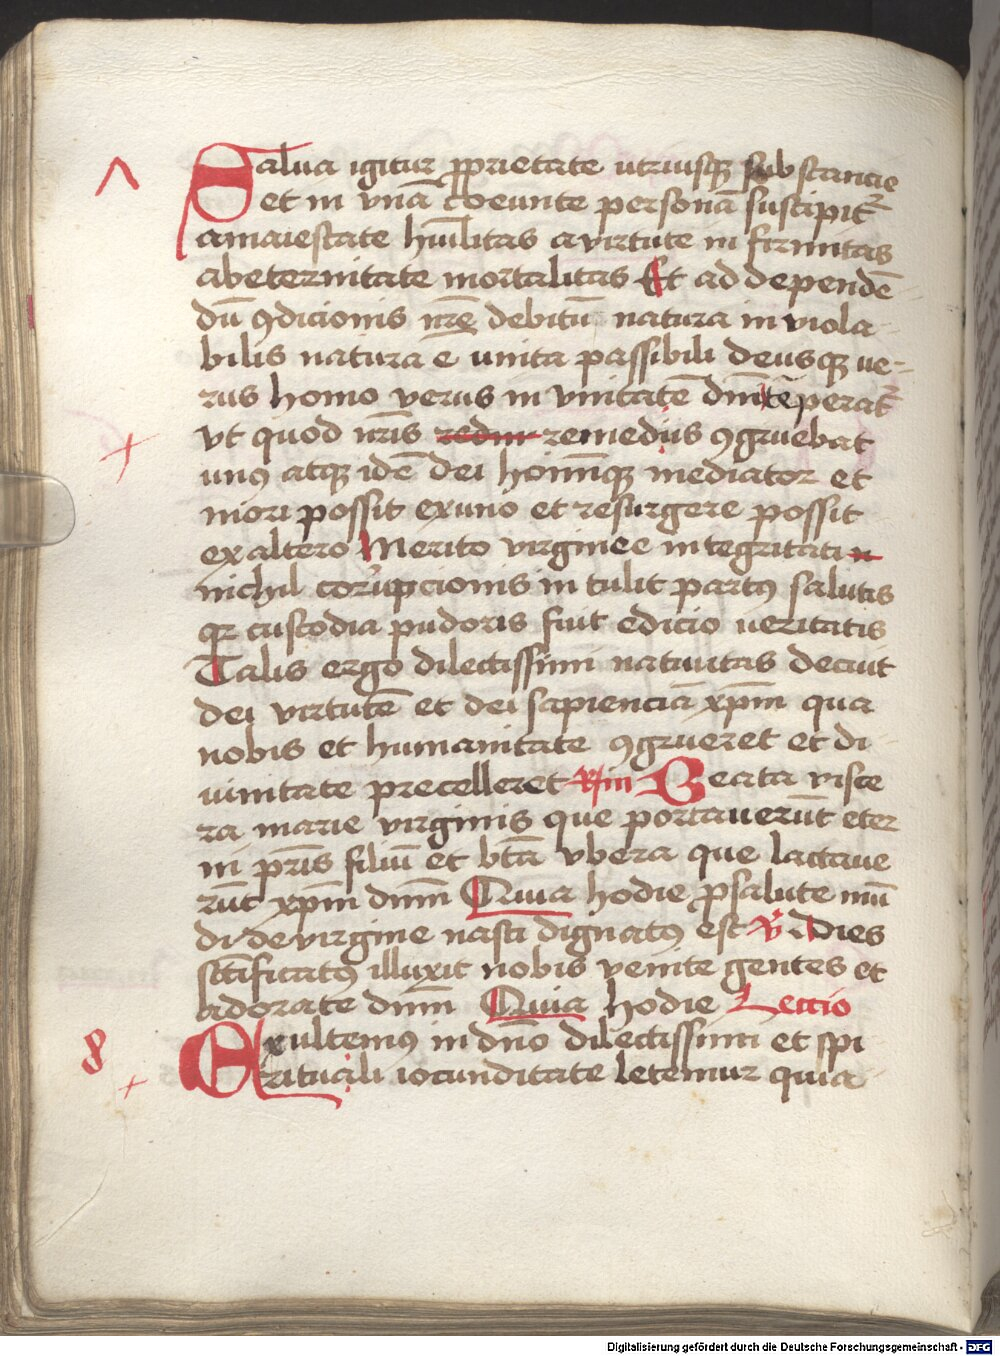 Salua igitur ꝓprietate utriusqꝫ substancie
et in vnā coeunte personā suscipit᷑
a maiestate hūilitas a virtute in firmitas
ab eternitate mortalitas Et ad dependē
dū ꝯdicionis nr̄e debitū natura in viola
bilis natura ē unita passibili deusqꝫ ue-
rus homo verus in vnitatē dn̄i tēperat᷑
vt quod nr̄is redur remedijs ꝯgruebat
unꝰ atqꝫ idē dei hoīmqꝫ mediator et
mori possit ex uno et resurgere possit
ex altero Merito virginee integritati n
nichil corrupcionis in tulit partꝰ salutis
qꝛ custodia pudoris fuit edicio ueritatis
Talis ergo dilectissimi natiuitas decuit
dei virtutē et dei sapienciā xp̄m qua
nobis et humanitate ꝯgrueret et di
uinitate precelleret Rm̄ Beata visce
ra marie virginis que portauerūt eter
ni pr̄is filiū et bt̄a vbera que lactaue
rūt xp̄m dn̄m Quia hodie ꝓ salute mū
di de virgine nasci dignatꝰ est V̄ Dies
sc̄ificatꝰ illuxit nobis venite gentes et
adorate dn̄m Quia hodie Lectio
8 Exultemꝰ in dn̄o dilectissimi et spi
rituali iocunditate letemur quia
Digitalisierung gefördert durch die Deutsche Forschungsgemeinschaft - DFG